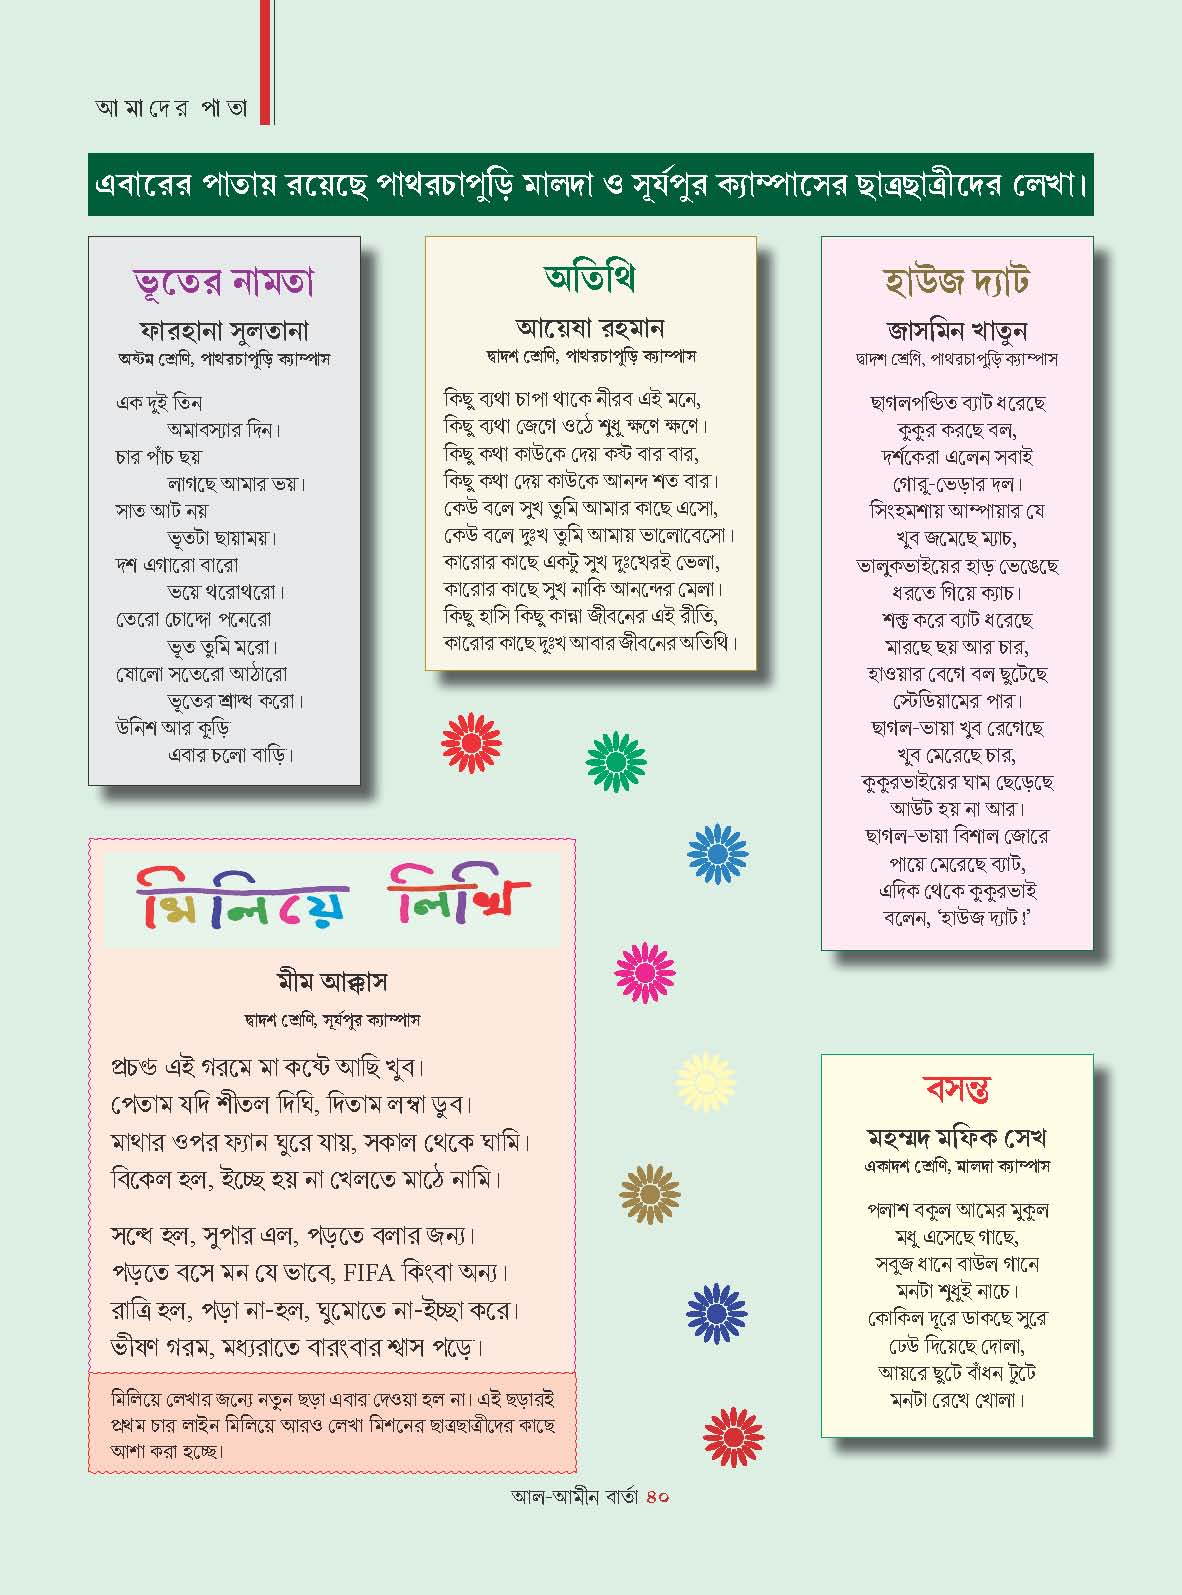 আমাদের পাতা
এবারের পাতায় রয়েছে পাথরচাপুড়ি মালদা ও সূর্যপুর ক্যাম্পাসের ছাত্রছাত্রীদের লেখা।
ভূতের নামতা
ফারহানা সুলতানা
অষ্টম শ্রেণি, পাথরচাপুড়ি ক্যাম্পাস
এক দুই তিন
অমাবস্যার দিন।
চার পাঁচ ছয়
লাগছে আমার ভয়।
সাত আট নয়
ভূতটা ছায়াময়।
দশ এগারো বারো
ভয়ে থরোথরো।
তেরো চোদ্দো পনেরো
ভূত তুমি মরো।
ষোলো সতেরো আঠারো
ভূতের শ্রাদ্ধ করো।
উনিশ আর কুড়ি
এবার চলো বাড়ি।
অতিথি
আয়েষা রহমান
দ্বাদশ শ্রেণি, পাথরচাপুড়ি ক্যাম্পাস
কিছু ব্যথা চাপা থাকে নীরব এই মনে,
কিছু ব্যথা জেগে ওঠে শুধু ক্ষণে ক্ষণে।
কিছু কথা কাউকে দেয় কষ্ট বার বার,
কিছু কথা দেয় কাউকে আনন্দ শত বার।
কেউ বলে সুখ তুমি আমার কাছে এসো,
কেউ বলে দুঃখ তুমি আমায় ভালোবেসো।
কারোর কাছে একটু সুখ দুঃখেরই ভেলা,
কারোর কাছে সুখ নাকি আনন্দের মেলা।
কিছু হাসি কিছু কান্না জীবনের এই রীতি,
কারোর কাছে দুঃখ আবার জীবনের অতিথি।
হাউজ দ্যাট
জাসমিন খাতুন
দ্বাদশ শ্রেণি, পাথরচাপুড়ি ক্যাম্পাস
ছাগলপণ্ডিত ব্যাট ধরেছে
কুকুর করছে বল,
দর্শকেরা এলেন সবাই
গোরু-ভেড়ার দল।
সিংহমশায় আম্পায়ার যে
খুব জমেছে ম্যাচ,
ভালুকভাইয়ের হাড় ভেঙেছে
ধরতে গিয়ে ক্যাচ।
শক্ত করে ব্যাট ধরেছে
মারছে ছয় আর চার,
হাওয়ার বেগে বল ছুটেছে
স্টেডিয়ামের পার।
ছাগল-ভায়া খুব রেগেছে
খুব মেরেছে চার,
কুকুরভাইয়ের ঘাম ছেড়েছে
আউট হয় না আর।
ছাগল-ভায়া বিশাল জোরে
পায়ে মেরেছে ব্যাট,
এদিক থেকে কুকুরভাই
বলেন, ‘হাউজ দ্যাট!’
মিলিয়ে লিখি
মীম আক্কাস
দ্বাদশ শ্রেণি, সূর্যপুর ক্যাম্পাস
প্রচণ্ড এই গরমে মা কষ্টে আছি খুব।
পেতাম যদি শীতল দিঘি, দিতাম লম্বা ডুব।
মাথার ওপর ফ্যান ঘুরে যায়, সকাল থেকে ঘামি।
বিকেল হল, ইচ্ছে হয় না খেলতে মাঠে নামি।
সন্ধে হল, সুপার এল, পড়তে বলার জন্য।
পড়তে বসে মন যে ভাবে, FIFA কিংবা অন্য।
রাত্রি হল, পড়া না-হল, ঘুমোতে না-ইচ্ছা করে।
ভীষণ গরম, মধ্যরাতে বারংবার শ্বাস পড়ে।
মিলিয়ে লেখার জন্যে নতুন ছড়া এবার দেওয়া হল না। এই ছড়ারই
প্রথম চার লাইন মিলিয়ে আরও লেখা মিশনের ছাত্রছাত্রীদের কাছে
আশা করা হচ্ছে।
বসন্ত
মহম্মদ মফিক সেখ
একাদশ শ্রেণি, মালদা ক্যাম্পাস
পলাশ বকুল আমের মুকুল
মধু এসেছে গাছে,
সবুজ ধানে বাউল গানে
মনটা শুধুই নাচে।
কোকিল দূরে ডাকছে সুরে
ঢেউ দিয়েছে দোলা,
আয়রে ছুটে বাঁধন টুটে
মনটা রেখে খোলা।
আল-আমীন বার্তা ৪০